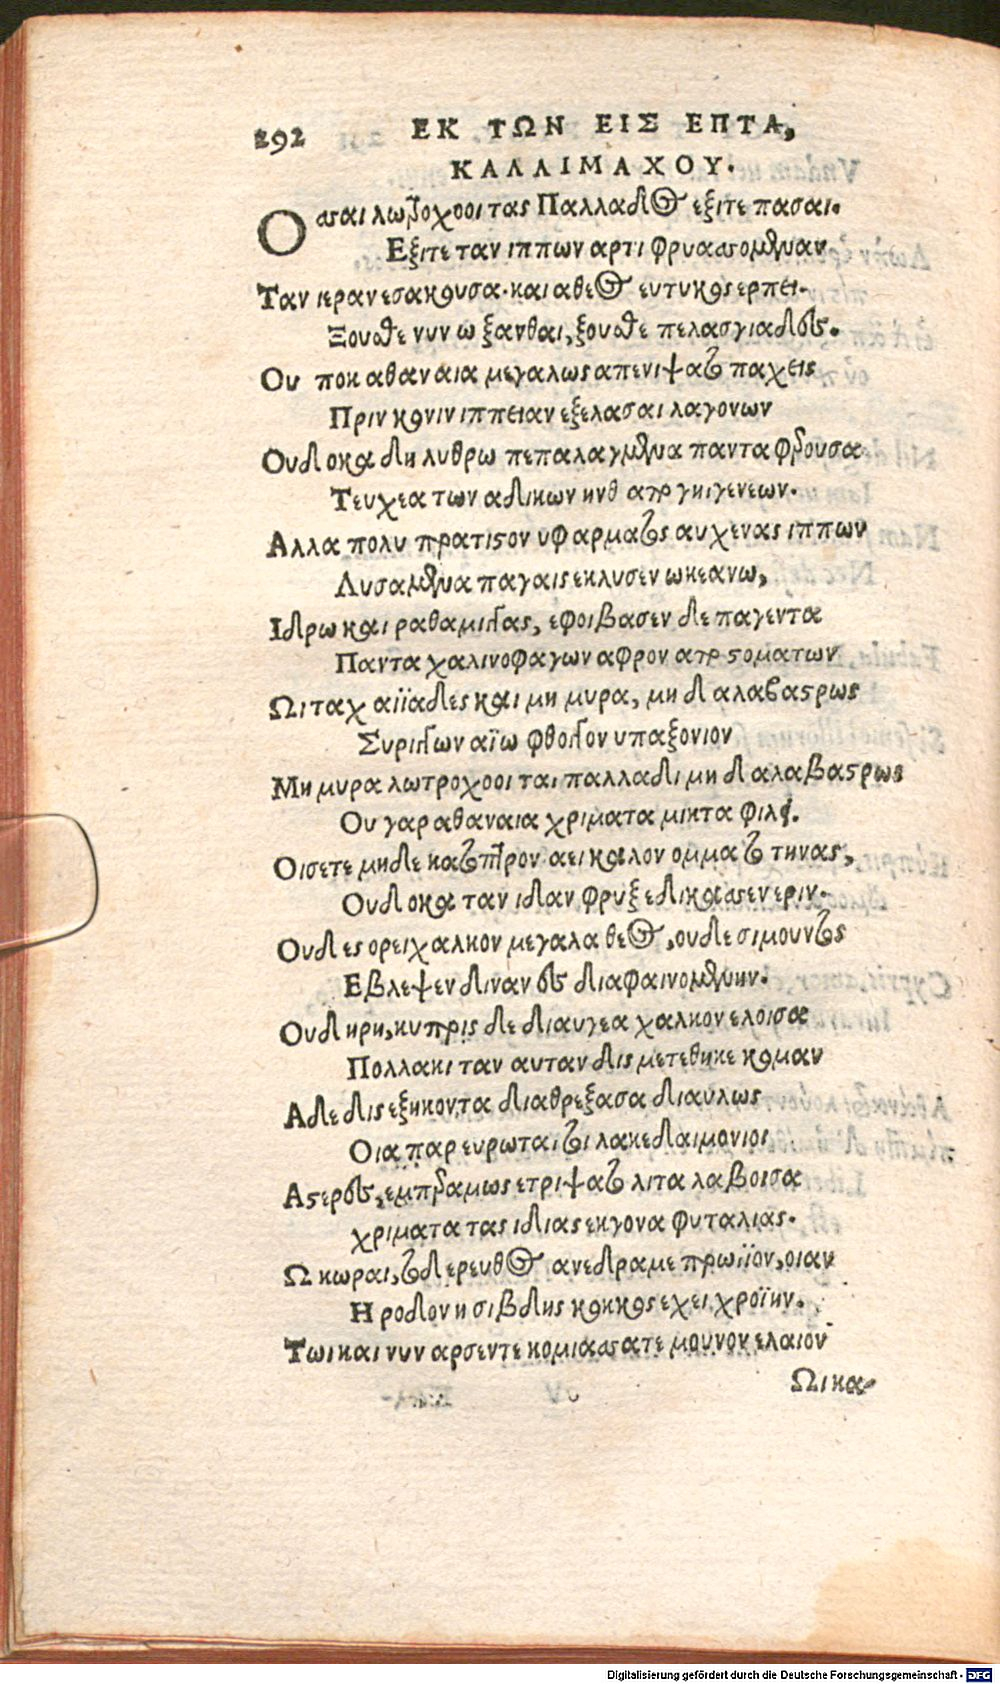 292 ΕΚ ΤΩΝ ΕΙΣ ΕΠΤΑ,
ΚΑΛΛΙΜΑΧΟΥ.
Οσσαι λωτροχοοι τας Παλλαδος εξιτε πασαι.
Εξιτε ταν ιππων αρτι φρυασσομεναν
Ταν ιεραν εσακουσα. και α θεος ευτυκος ερπει.
Ξουσθε νυν ω ξανθαι, ξουσθε πελασγιαδες.
Ου ποκ αθαναια μεγαλως απενιψατο παχεις
Πριν κονιν ιππειαν εξελασαι λαγονων
Ουδ οκα δη λυθρω πεπαλαγμενα παντα φερουσα
Τευχεα των αδικων ηνθ απο γηιγενεων.
Αλλα πολυ πρατιστον υφ αρματος αυχενας ιππων
Λυσαμενα παγαις εκλυσεν ωκεανω,
Ιδρω και ραθαμιγγας, εφοιβασεν δε παγεντα
Παντα χαλινοφαγων αφρον απο στοματων
Ωι ταχ αιϊαδες και μη μυρα, μη δ αλαβαστρως
Συριγγων αϊω φθογγον υπαξονιον
Μη μυρα λωτροχοοι ται παλλαδι μη δ αλαβαστρως
Ου γαρ αθαναια χριματα μικτα φιλει.
Οισετε μηδε κατοπτρον αει καλον ομμα το τηνας,
Ουδ οκα ταν ιδαν φρυξ εδικασσεν εριν.
Ουδ ες ορειχαλκον μεγαλα θεος, ουδε σιμουντος
Εβλεψεν διναν ες διαφαινομενην.
Ουδ ηρη, κυπρις δε διαυγεα χαλκον ελοισα
Πολλακι ταν αυταν δις μετεθηκε κομαν
Α δε δις εξηκοντα διαθρεξασα διαυλως
Οια παρ ευρωται τοι λακεδαιμονιοι
Αστερες, εμπεραμως ετριψατο λιτα λαβοισα
χριματα τας ιδιας εκγονα φυταλιας.
Ω κωραι, το δ ερευθος ανεδραμε πρωιϊον, οιαν
Η ροδον η σιβδης κοκκος εχει χροϊην.
Τωι και νυν αρσεν τε κομιασσατε μουνον ελαιον
Ωι κα-
Digitalisierung gefördert durch die Deutsche Forschungsgemeinschaft - DFG